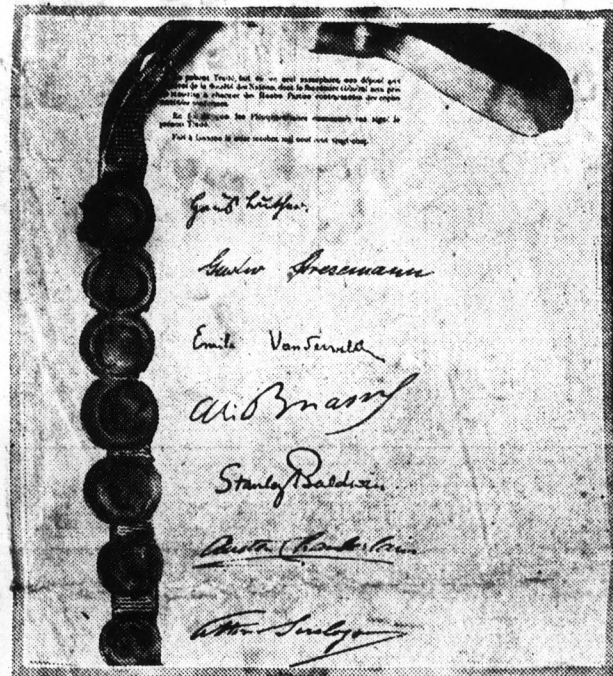 présent Traité, fait en un seul exemplaire, sera déposé aux
de la Société des Nations, dont le Secrétaire Général sera prié
remettre à chacune des Hautes Parties contractantes des copies
conformes.
En foi de quoi les Plénipotentiaires ont signé le
présent Traité.
Fait à Locarno le seize octobre mil neuf cent vingt-cinq.
Hans Luther.
Gustav Stresemann
Emile Vandervelde
Ari Briand
Stanley Baldwin
Austen Chamberlain
Vittorio Scialoja